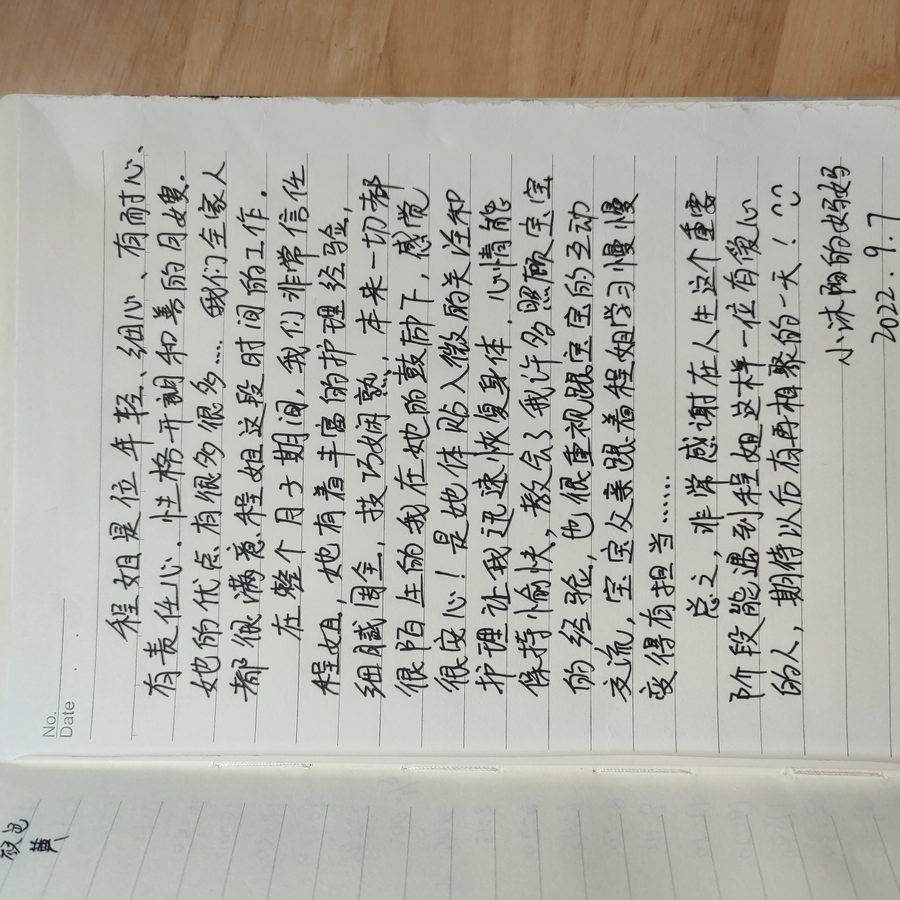 No.
Date
程姐是位年轻、细心、有耐心、
有责任心、性格开朗和善的月嫂.
她的优点有很多很多.... 我们全家人
都很满意程姐这段时间的工作.
在整个月子期间,我们非常信任
程姐,她有着丰富的护理经验,
细腻周全,技巧娴熟,本来一切都
很陌生的我在她的鼓励下,感觉
很安心!是她体贴入微的关注和
护理让我迅速恢复身体,心情能
保持愉快,教会了我许多照顾宝宝
的经验,也很重视跟宝宝的互动
交流,宝宝父亲跟着程姐学习慢慢
变得有担当......
总之,非常感谢在人生这个重要
阶段能遇到程姐这样一位有爱心
的人,期待以后有再相聚的一天!
小沐阳的妈妈
2022.9.7